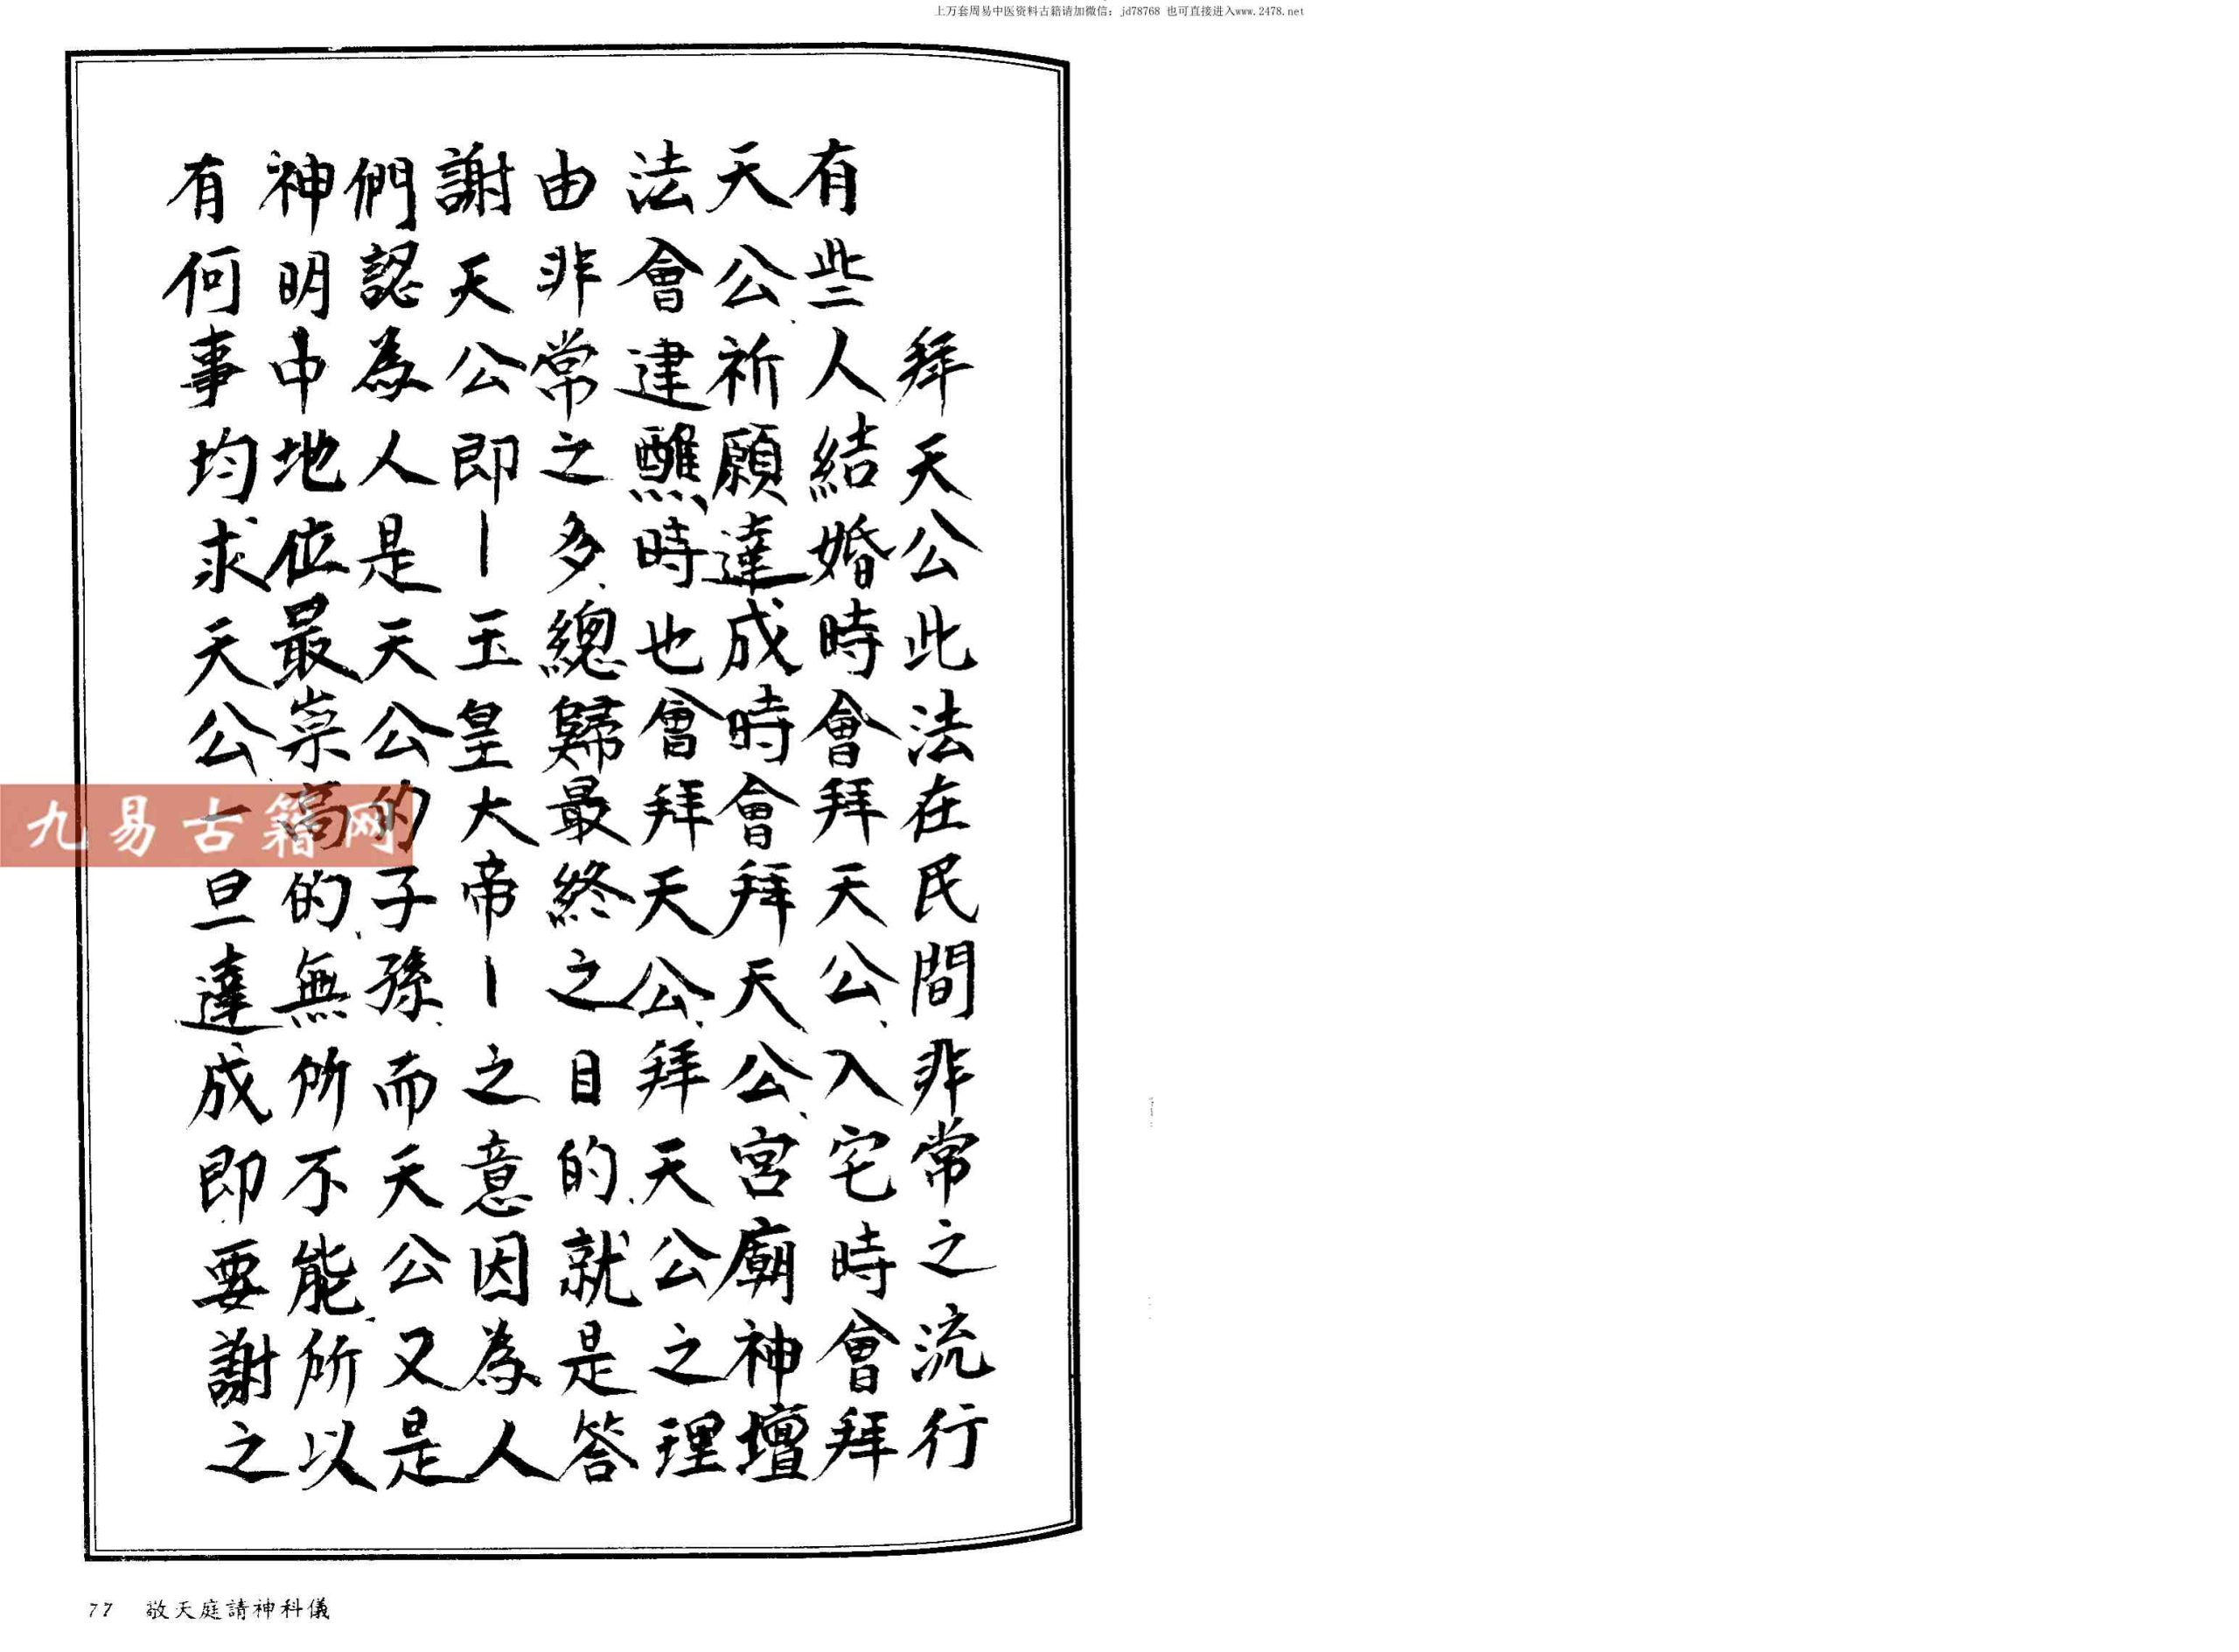 上万套周易中医资料古籍请加微信：jd78768 也可直接进入www.2478.net
拜天公此法在民間非常之流行
有些人結婚時會拜天公、入宅時會拜
天公、祈願達成時會拜天公、宮廟神壇
法會建醮、時也會拜天公、拜天公之理
由非常之多、總歸最終之目的、就是答
謝天公即—玉皇大帝—之意因為人
們認為人是天公的子孫、而天公又是
神明中地位最崇高的、無所不能、所以
有何事均求天公、一旦達成即要謝之
九易古籍网
77 敬天庭請神科儀